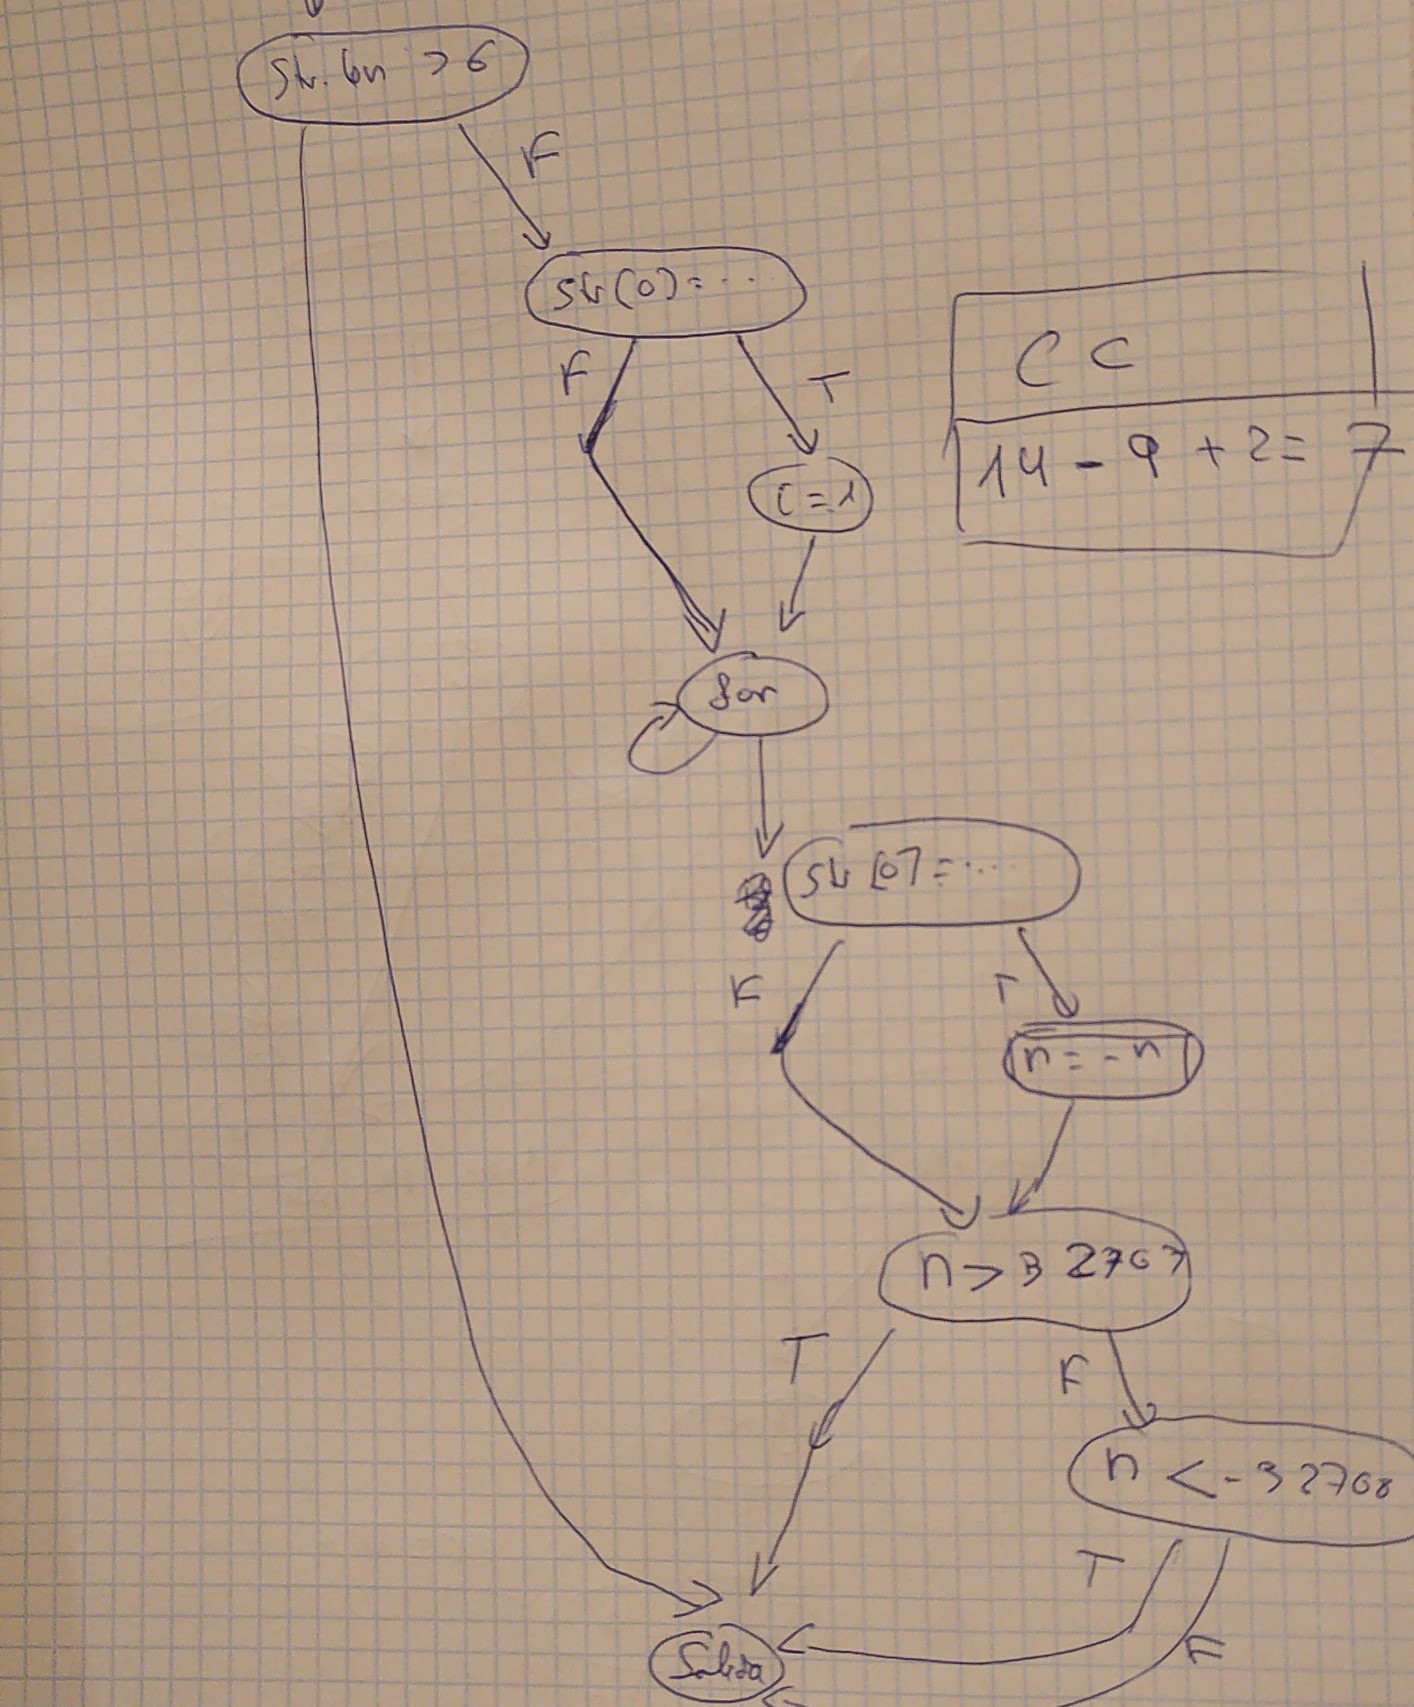 str.len > 6
F
str(0) = ...
F
T
C C
14 - 9 + 2 = 7
i = 1
for
str[0] = ...
F
T
n = - n
n > 32767
T
F
n < - 32768
T
F
Salida